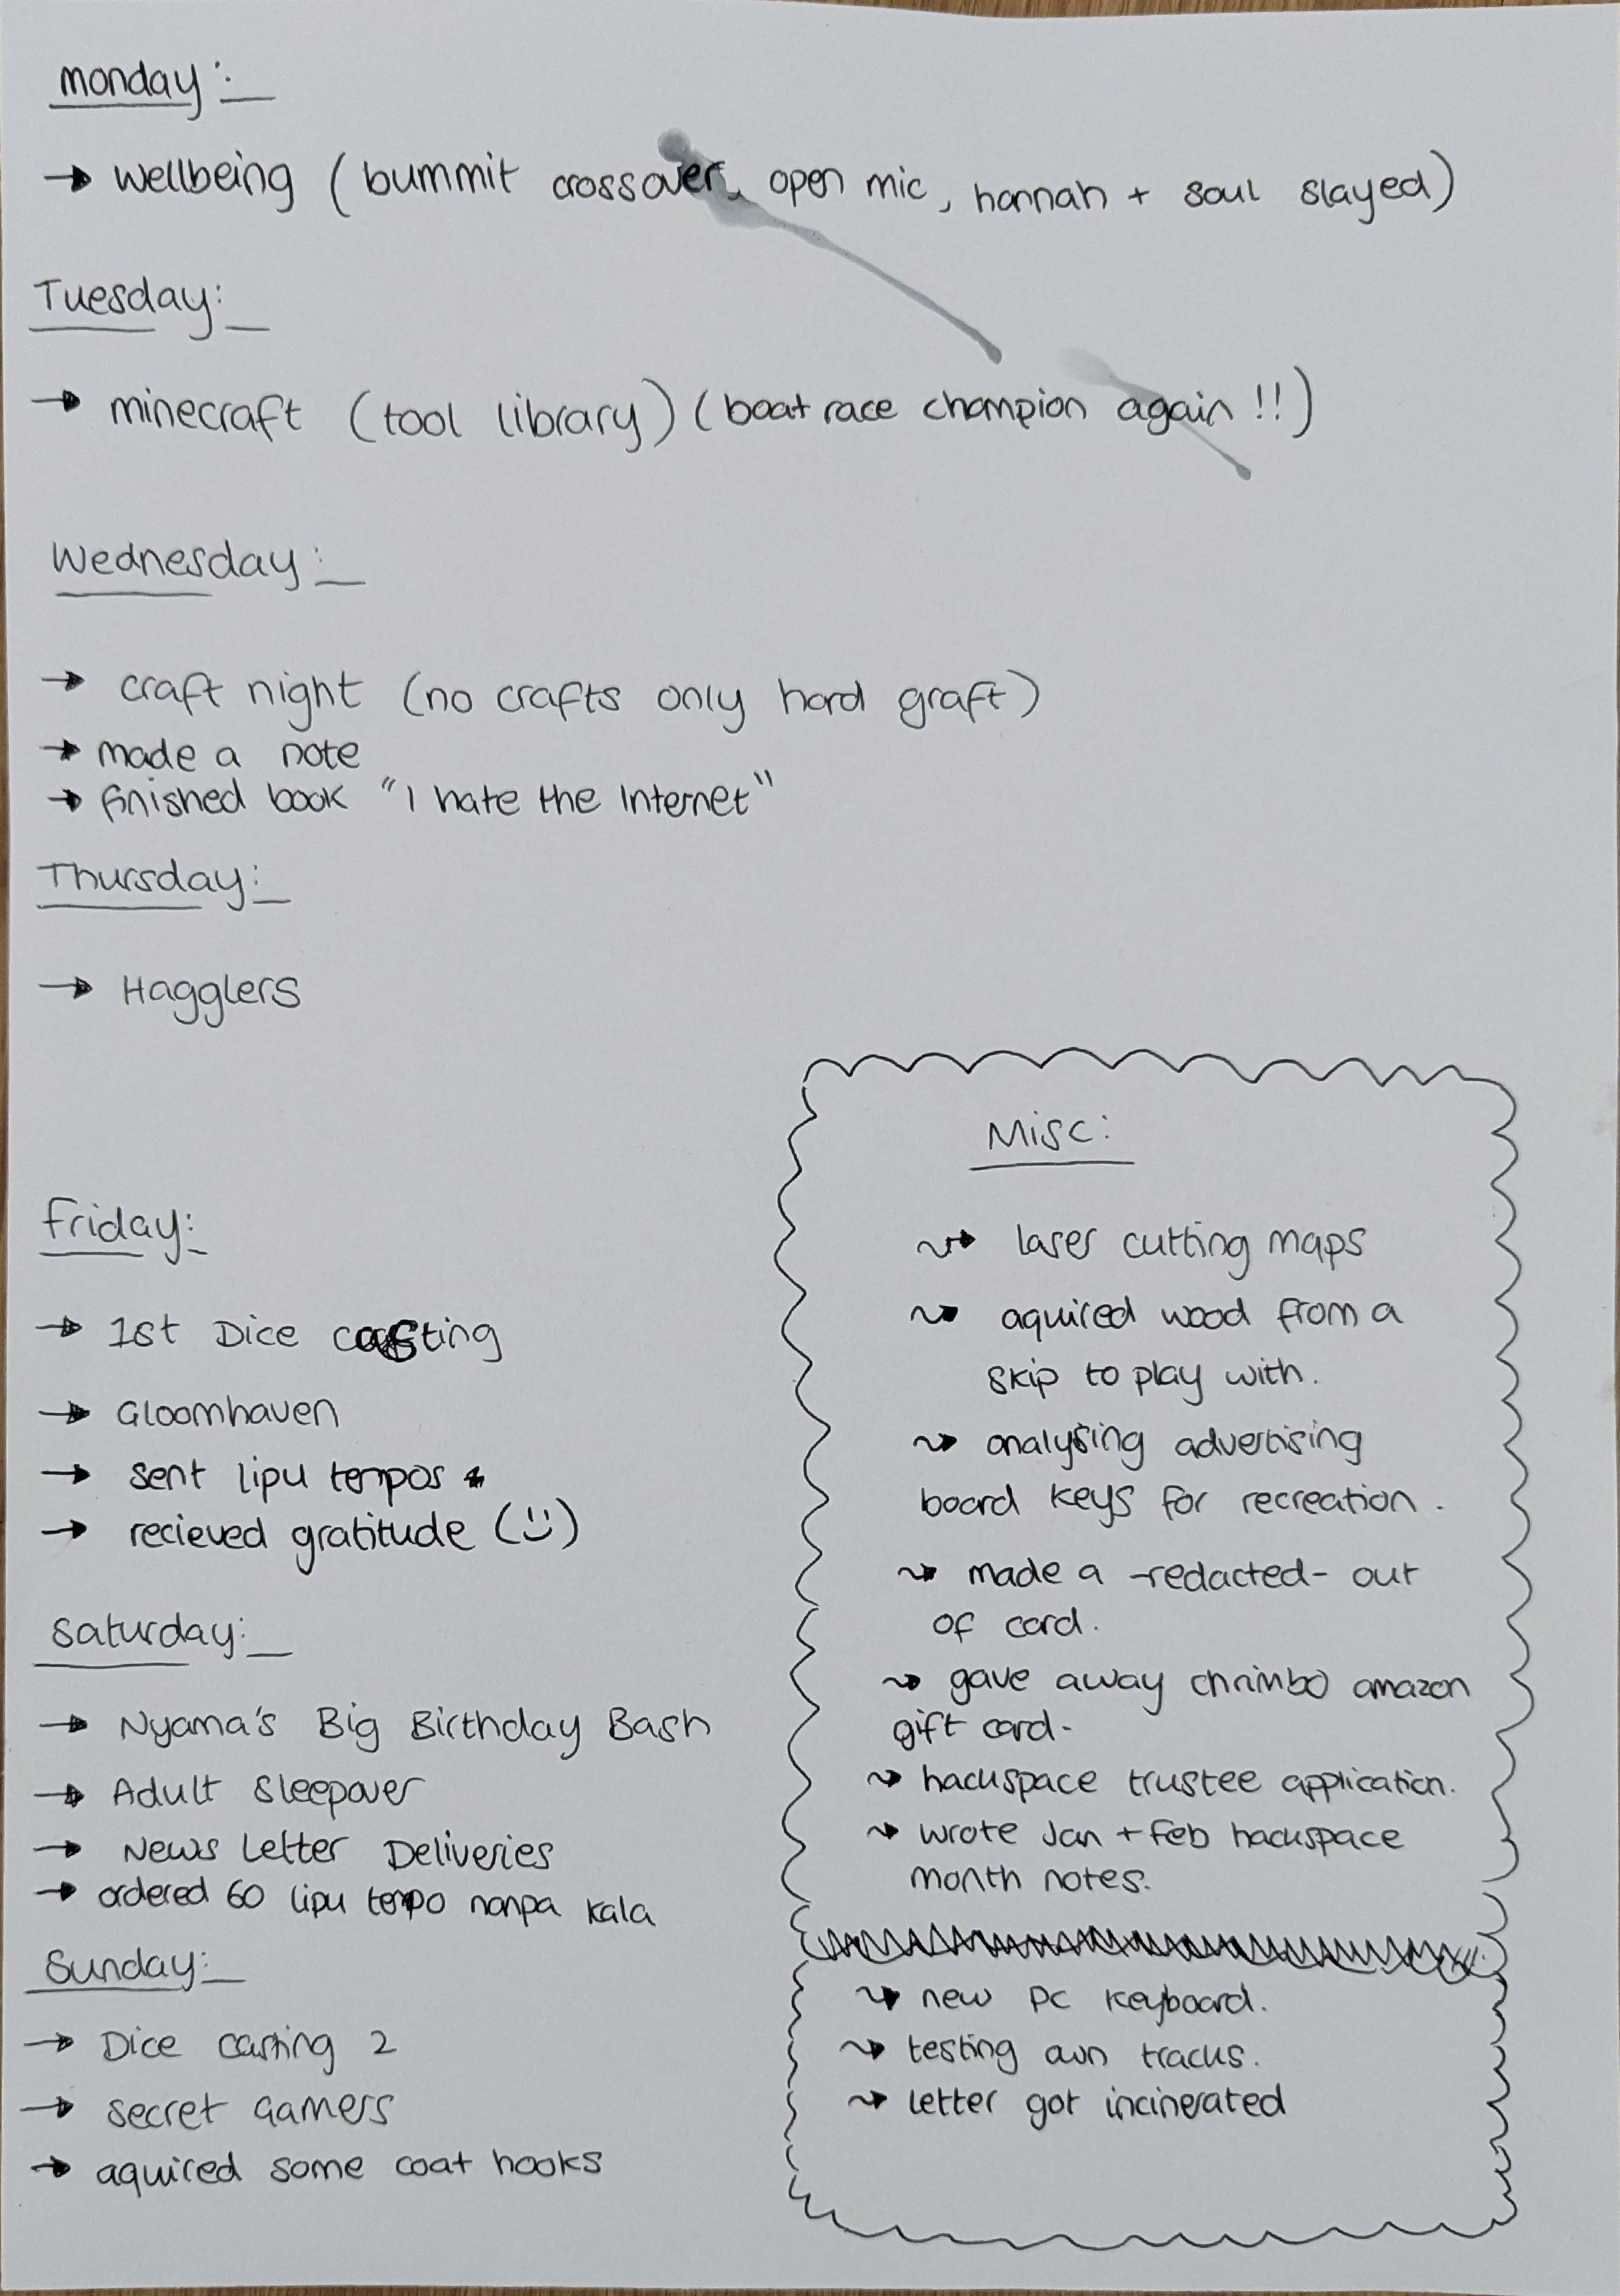 monday:_
→ wellbeing (bummit crossover, open mic, hannah + soul slayed)
Tuesday:_
→ minecraft (tool library) (boat race champion again !!)
Wednesday:_
→ craft night (no crafts only hard graft)
→ made a note
→ finished book "I hate the Internet"
Thursday:_
→ Hagglers
friday:_
→ 1st Dice casting
→ Gloomhaven
→ sent lipu tenpos
→ recieved gratitude (:))
Saturday:_
→ Nyama's Big Birthday Bash
→ Adult Sleepover
→ News Letter Deliveries
→ ordered 60 lipu tenpo nanpa kala
Sunday:_
→ Dice casting 2
→ secret Gamers
→ aquired some coat hooks
Misc:
⤳ laser cutting maps
⤳ aquired wood from a
skip to play with.
⤳ analysing advertising
board keys for recreation.
⤳ made a -redacted- out
of card.
⤳ gave away chrimbo amazon
gift card-
⤳ hackspace trustee application.
⤳ wrote Jan + Feb hackspace
month notes.
⤳ new pc keyboard.
⤳ testing own tracks.
⤳ letter got incinerated